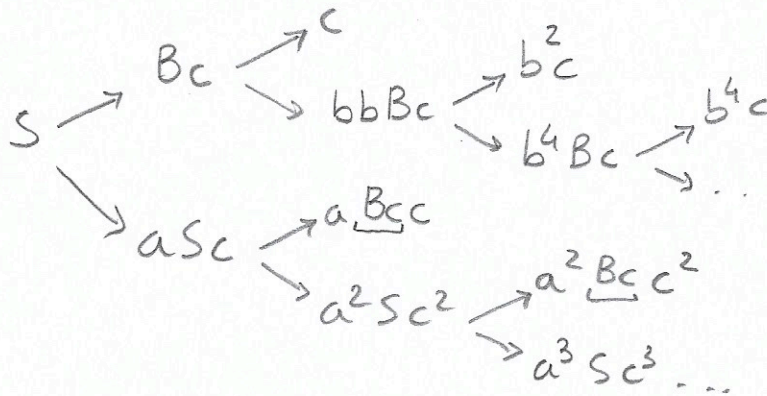 S → Bc → c
→ bbBc → b²c
→ b⁴Bc → b⁴c
→ ..
→ aSc → aBcc
→ a²Sc² → a²Bcc²
→ a³Sc³ ...